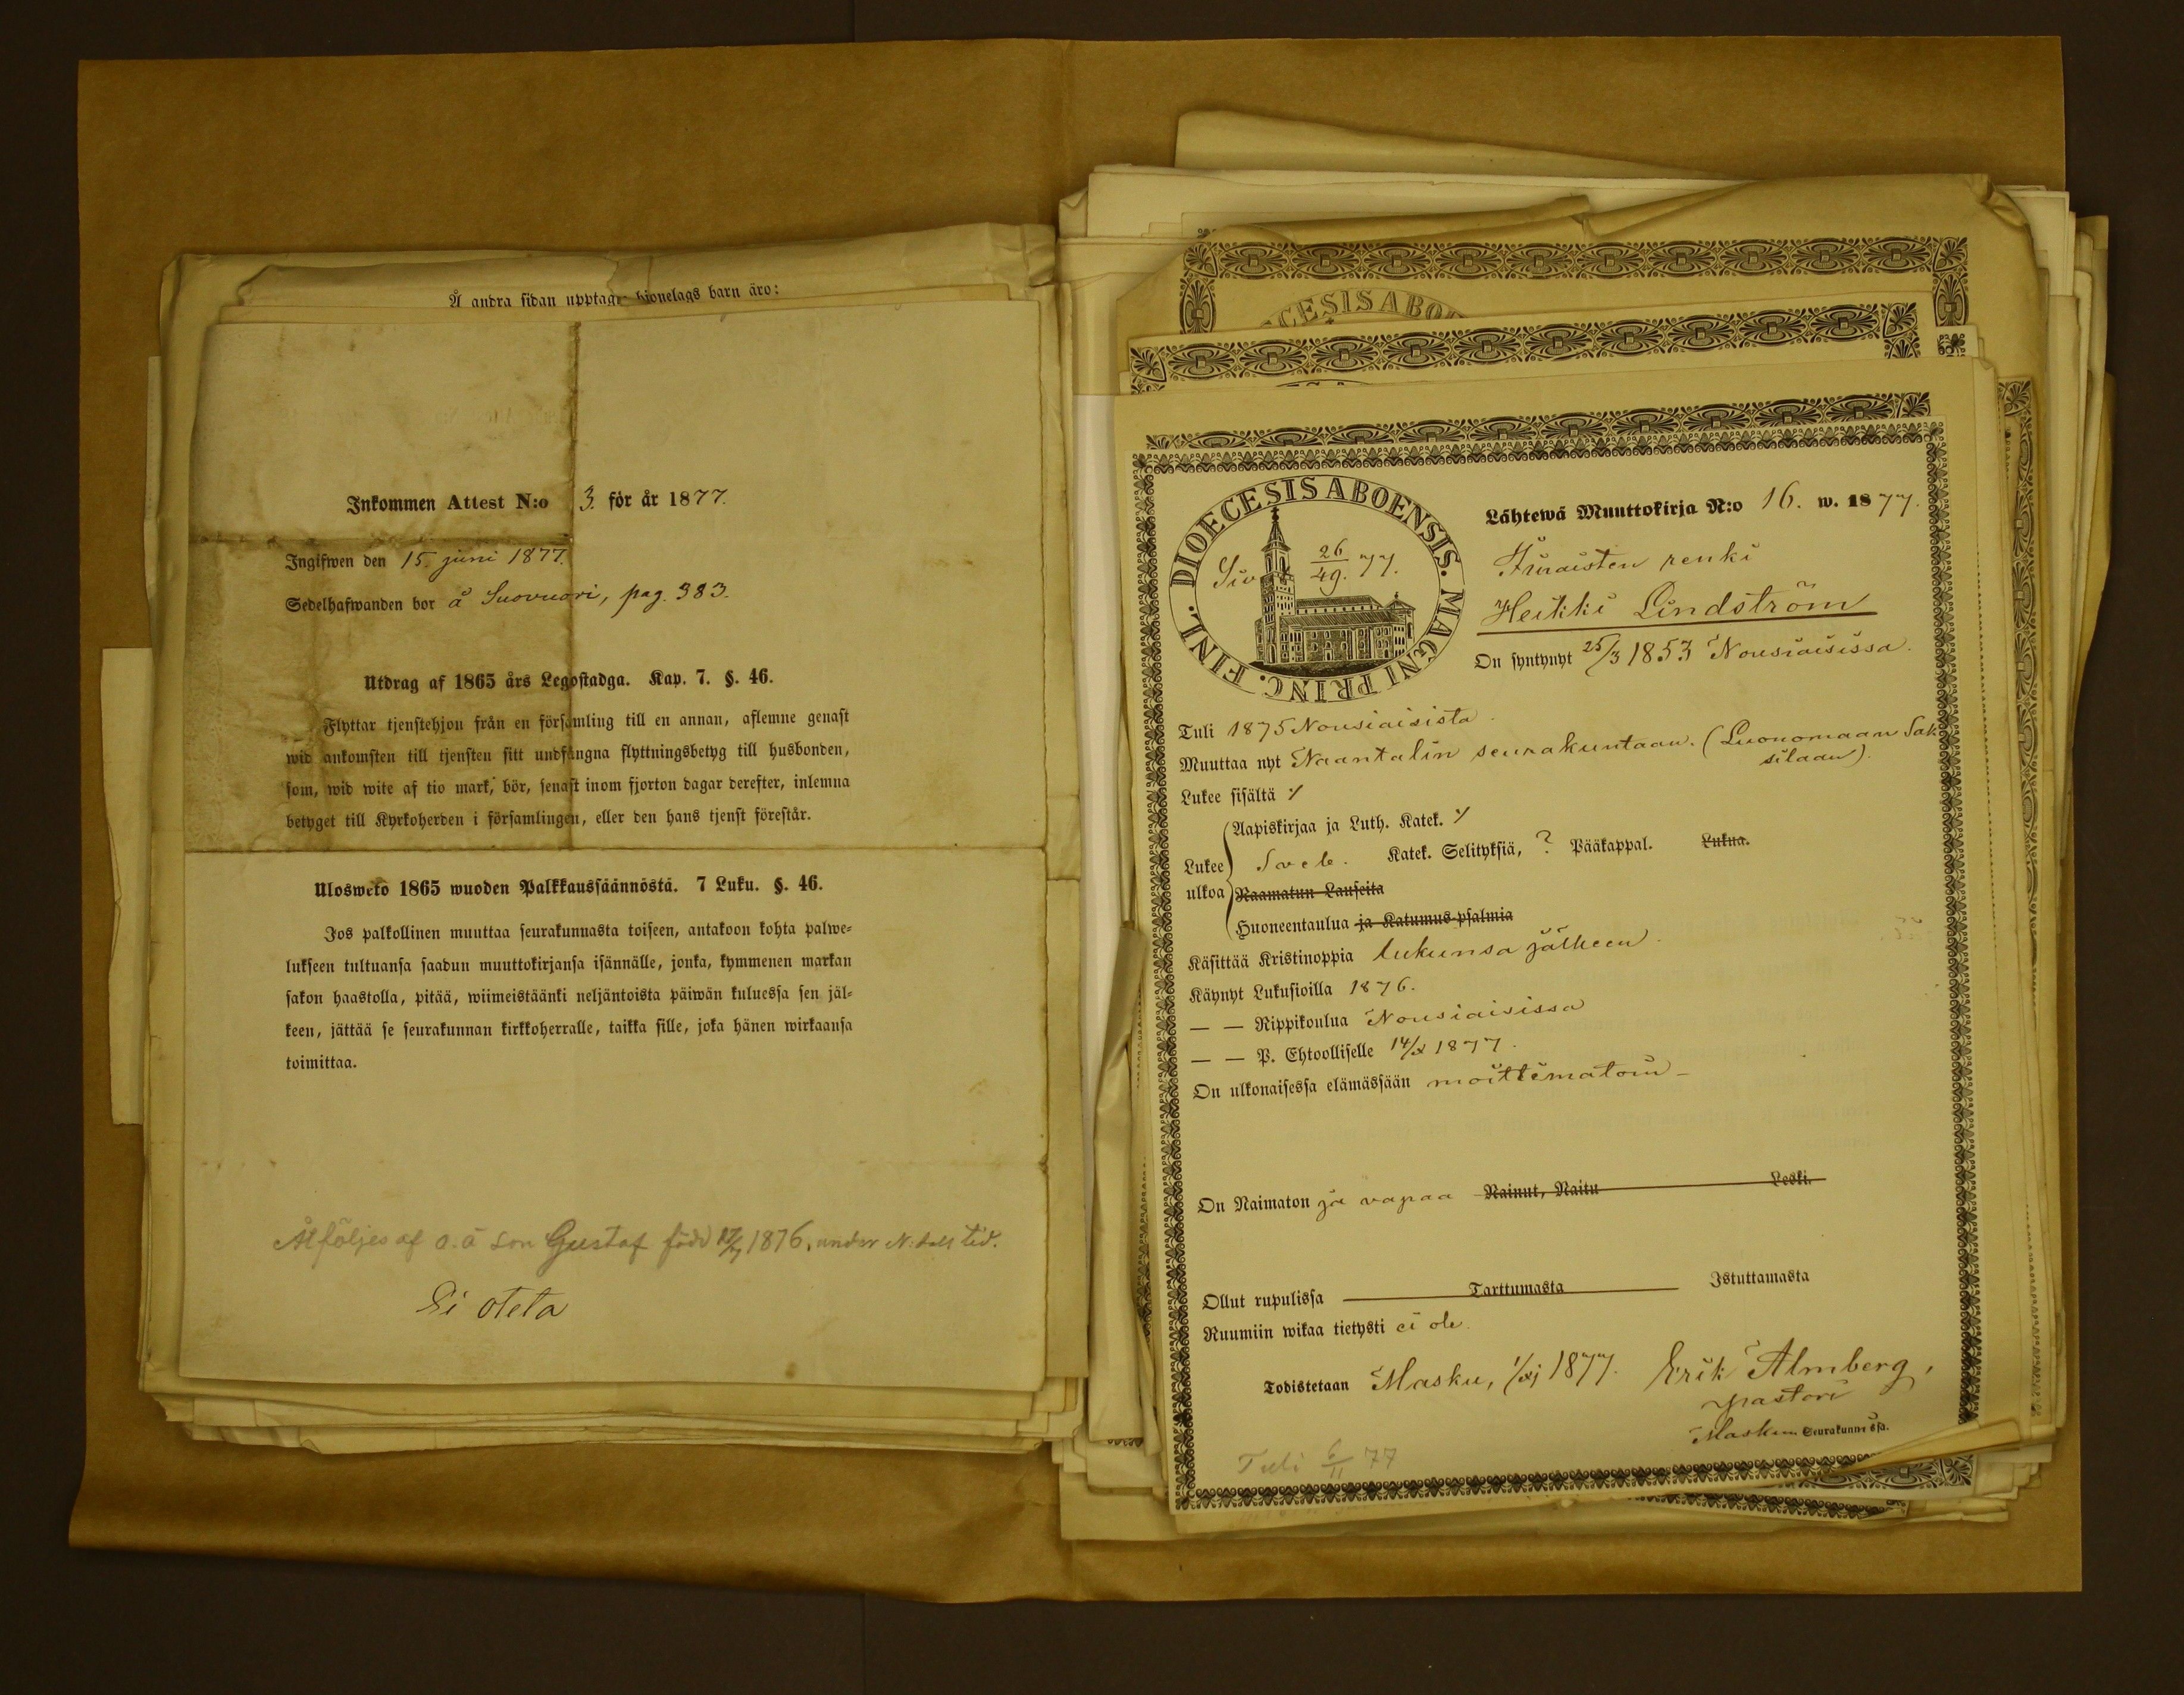 Å andra sidan upptagne hjonelags barn äro:
Inkommen Attest N:o 3. för år 1877.
Ingifwen den 15. juni 1877.
Sedelhafwanden bor å Suovuori, pag. 383.
Utdrag af 1865 års Legostadga. Kap. 7. §. 46.
Flyttar tjenstehjon från en församling till en annan, aflemne genast
wid ankomsten till tjensten sitt undfångna flyttningsbetyg till husbonden,
som, wid wite af tio mark, bör, senast inom fjorton dagar derefter, inlemna
betyget till Kyrkoherden i församlingen, eller den hans tjenst förestår.
Ulosweto 1865 wuoden Palkkaussäännöstä. 7 Luku. §. 46.
Jos palkollinen muuttaa seurakunnasta toiseen, antakoon kohta palwe-
lukseen tultuansa saadun muuttokirjansa isännälle, jonka, kymmenen markan
sakon haastolla, pitää, wiimeistäänki neljäntoista päiwän kuluessa sen jäl-
keen, jättää se seurakunnan kirkkoherralle, taikka sille, joka hänen wirkaansa
toimittaa.
Åtföljes af o. ä son Gustaf född 1876, under tid.
Ei oteta
CESIS ABO
DIOECESIS ABOENSIS. MAGNI PRINC. FINL.
Siv 26/49. 77.
Lähtewä Muuttokirja N:o 16. w. 1877.
renki
Heikki Lindström
On syntynyt 25/3 1853 Nousiaisissa.
Tuli 1875 Nousiaisista.
Muuttaa nyt Naantalin seurakuntaan. (Luonomaan Sak
silaan).
Lukee sisältä
Aapiskirjaa ja Luth. Katek.
Lukee
ulkoa
Katek. Selityksiä, ? Pääkappal. Lukua.
Raamatun Lauseita
Huoneentaulua ja Katumus-psalmia
Käsittää Kristinoppia lukunsa jälkeen.
Käynyt Lukusioilla 1876.
— — Rippikoulua Nousiaisissa
— — P. Ehtoolliselle 14/x 1877.
On ulkonaisessa elämässään moittimatoin
On Naimaton ja vapaa Nainut, Naitu Leski.
Ollut rupulissa Tarttumasta Istuttamasta
Ruumiin wikaa tietysti ei ole.
Todistetaan Masku, 1/xj 1877. Erik Almberg,
pastori
Maskun Seurakunnassa.
Tuli 6/11 77